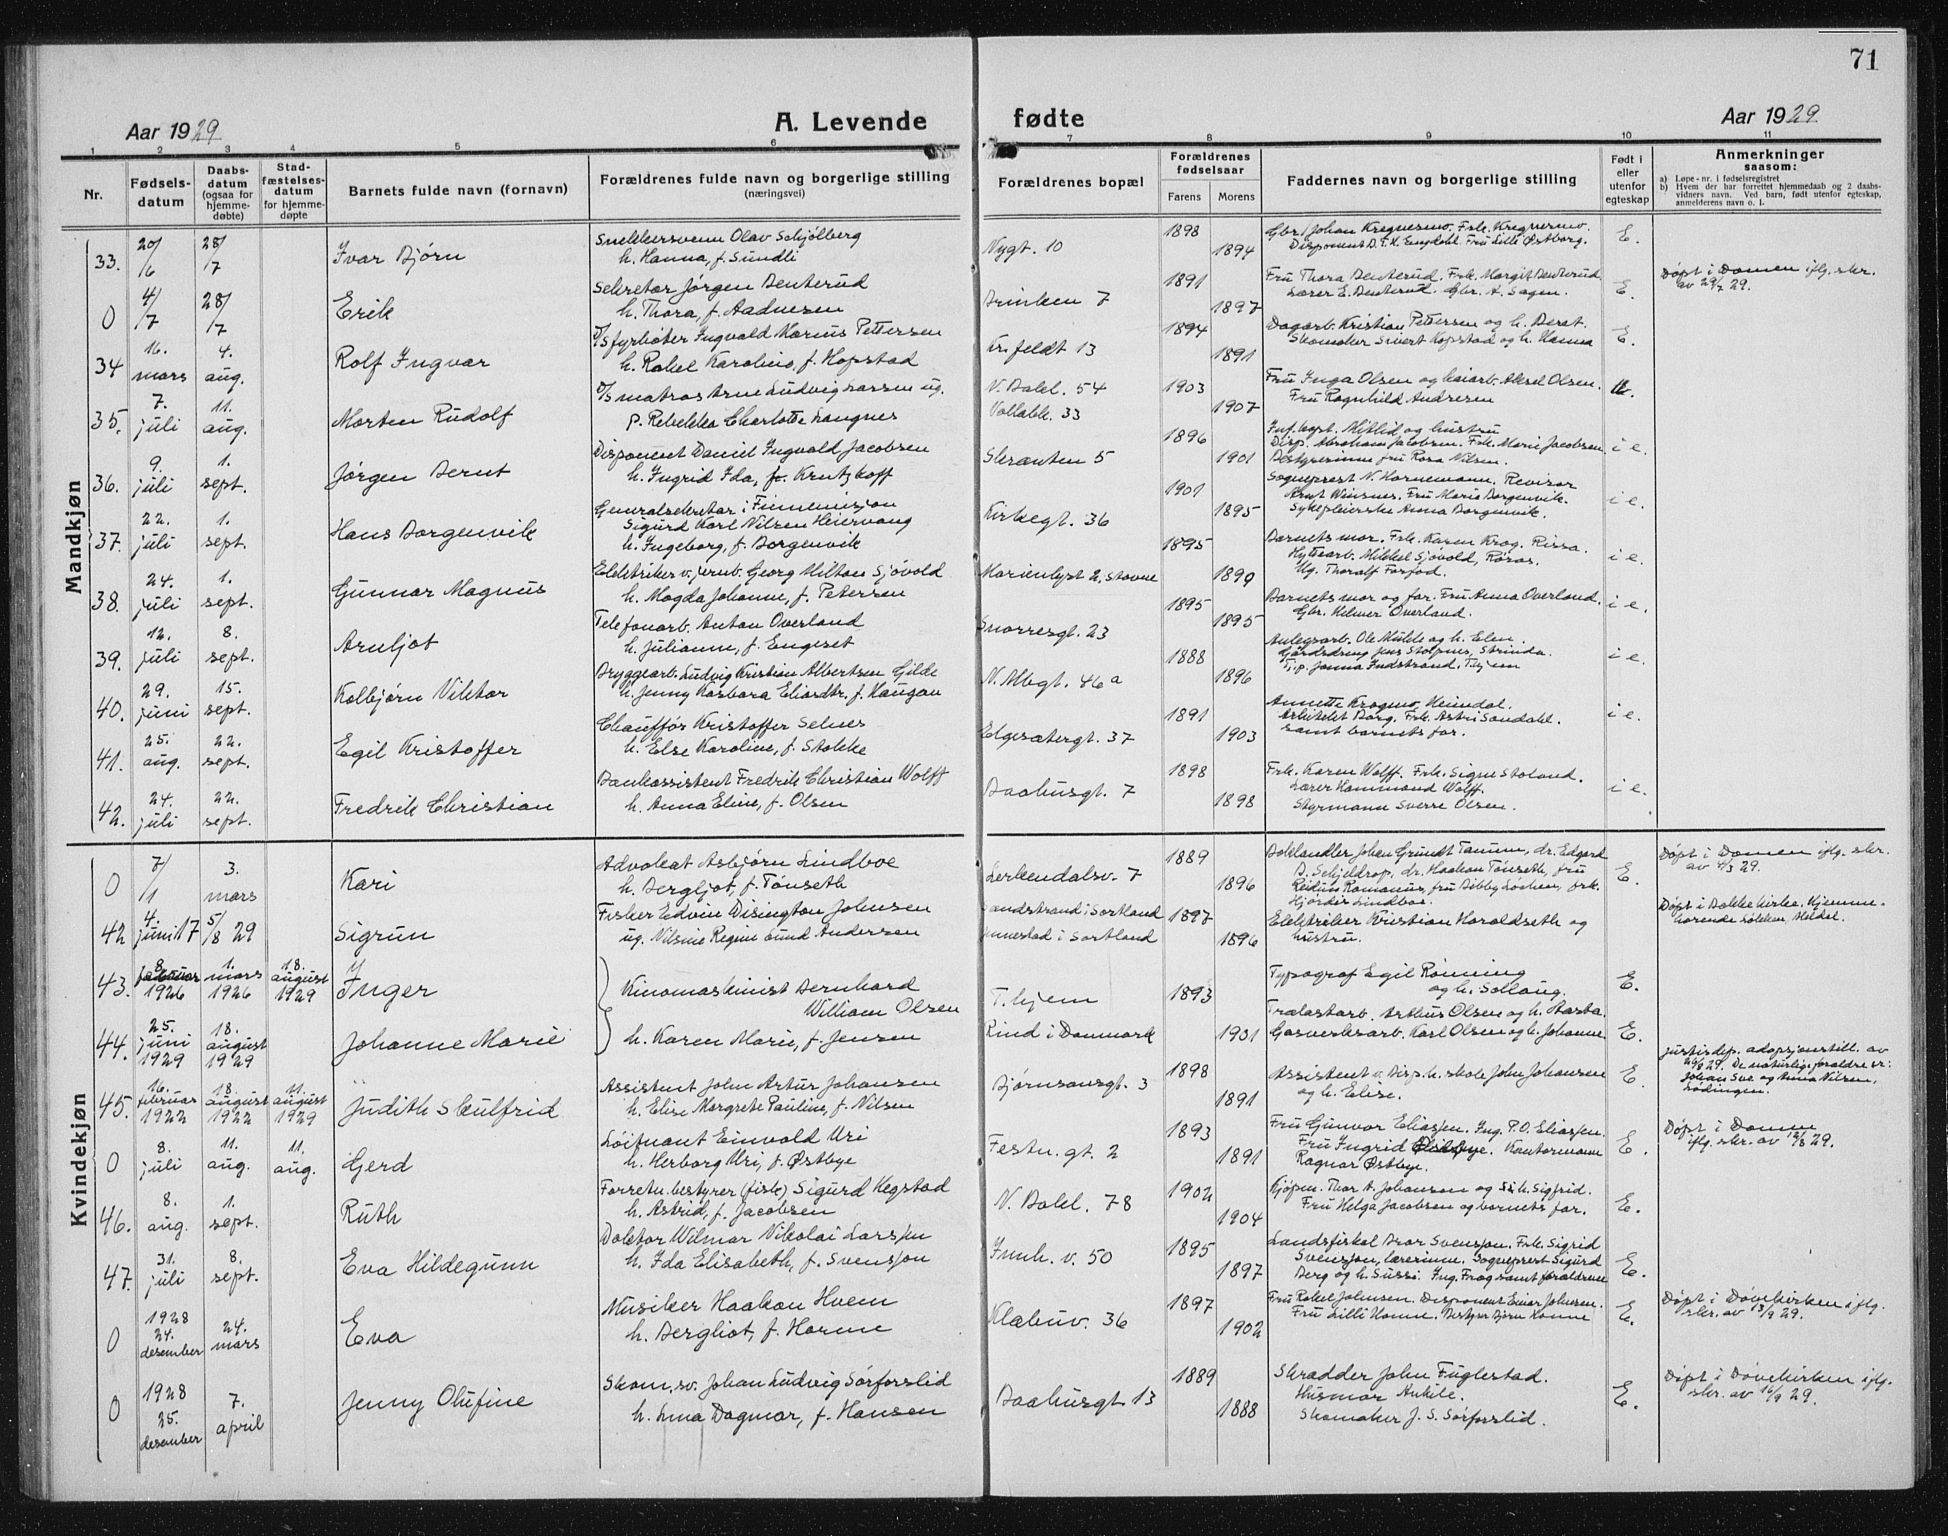 71
Aar 1929 A. Levende fødte Aar 1929
1 2 3 4 5 6 7 8 9 10 11
Nr. Fødsels-datum Daabs-datum (ogsaa for hjemme-døbte) Stad-fæstelses-datum for hjemme-døpte Barnets fulde navn (fornavn) Forældrenes fulde navn og borgerlige stilling (næringsvei) Forældrenes bopæl Forældrenes fødselsaar Farens Morens Faddernes navn og borgerlige stilling Født i eller utenfor egteskap Anmerkninger saasom:
a) Løpe-nr. i fødselsregistret
b) Hvem der har forrettet hjemmedaab og 2 daabs-vidners navn. Ved barn, født utenfor egteskap, anmelderens navn o. l.
Mandkjøn
33. 20/6 28/7 Ivar Bjørn
Snekkersvenn Olav Schjølberg
h. Hanna, f. Sundli
Nygt. 10 1898 1894
Gbr. Johan Kregnesmo. Frk. Kregnesmo.
Disponent D. F. K. Engdohl. Fru Lilli Østborg.
E.
0 4/7 28/7 Erik
Sekretær Jørgen Benterud
h. Thora, f. Aadnesen
Brinken 7 1891 1897
Fru Thora Benterud. Frk. Margit Benterud
Lærer E. Benterud. Gbr. A. Sagen.
E.
Døpt i Domen iflg. skr.
av 29/7 29.
34 16. mars 4. aug. Rolf Ingvar
D/S fyrbøter Ingvald Marius Pettersen
h. Rakel Karoline, f. Hopstad
Kr. feldt 13 1894 1891
Dagarb. Kristian Pettersen og h. Berat.
Skomaker Sivert Hopstad og h. Hanna
E.
35. 7. juli 11. aug. Morten Rudolf
D/S matros Arne Ludvig Larsen ug.
p. Rebekka Charlotte Langnes
N. Bakl. 54
Vollabk. 33
1903 1907
Fru Inga Olsen og haiarb. Aksel Olsen.
Fru Ragnhild Andresen
U.
36. 9. juli 1. sept. Jørgen Bernt
Disponent Daniel Ingvald Jacobsen
h. Ingrid Ida, f. Krutzkoff
Skrænten 5 1896 1901
Inf. kapt. Mitlid og hustru
Disp. Abraham Jacobsen. Frk. Marie Jacobsen
Bestyrerinne fru Rosa Nilsen.
i e.
37. 22. juli 1. sept. Hans Borgenvik
Generalsekretær i Finnemisjon
Sigurd Karl Nilsen Heiervang
h. Ingeborg, f. Borgenvik
Kirkegt. 36 1901 1895
Sogneprest N. Hornemann. Revisor
Arnt Winsnes. Fru Maria Borgenvik.
Sykepleierske Anna Borgenvik.
i e.
38. 24. juli 1. sept. Gunnar Magnus
Elektriker v. jernb. Georg Milton Sjøvold
h. Magda Johanne, f. Petersen
Marienlyst 2. Stavne 1895 1899
Barnets mor. Frk. Karen Krog. Rissa.
Hyttearb. Mikkel Sjøvold, Røros.
Ug. Thoralf Forfod.
i e.
39. 12. juli 8. sept. Arnljot
Telefonarb. Anton Overland
h. Julianne, f. Engeset
Snorresgt. 23 1895 1895
Barnets mor og far. Fru Anna Overland.
Gbr. Helmer Overland.
i e.
40. 29. juni 15. sept. Kolbjørn Viktor
Bryggearb. Ludvig Kristian Albertsen Gilde
h. Jenny Barbara Eliasdtr. f. Haugan
N. Allegt. 46a 1888 1896
Anlegsarb. Ole Mukle og h. Elen.
Gårdsdreng Jens Stolpnes, Strinda.
T. p. Janna Indstrand. T. hjem
i e.
41. 25. aug. 22. sept. Egil Kristoffer
Chauffør Kristoffer Selnes
h. Else Karoline, f. Stokke
Edgesætergt. 37 1891 1903
Annette Krogmo, Heimdal.
Arkitekt Borg. Frk. Astri Sandahl.
samt barnets far.
i e.
42. 24. juli 22. sept. Fredrik Christian
Bankassistent Fredrik Christian Wolff
h. Anna Eline, f. Olsen
Baahusgt. 7 1898 1898
Frk. Karen Wolff. Frk. Signe Stoland.
Lærer Hammond Wolff.
Styrmann Sverre Olsen.
i e.
Kvindekjøn
0 7/1 3. mars Kari
Advokat Asbjørn Lindboe
h. Bergljot, f. Tønseth
Lerkendalsv. 7 1889 1896
Boklandler Johan Grundt Tanum, dr. Edgard
B. Schjeldrop, dr. Haakon Tønseth, fru
Reidun Romanus, fru Bibby Lochen, frk.
Hjørdis Lindboe.
E.
Døpt i Domen iflg. skr.
av 4/3 29.
42 4. juni 17 5/8 29 Sigrun
Fisker Edvin Disington Johnsen
ug. Nilsine Regine Lund Andersen
Sandstrand i Sortland
Jennestad i Sortland
1897 1896
Elektriker Kristian Haroldseth og
hustru.
Døpt i Bakke kirke. Hjemme-
hørende Løkken, Meldal.
43. 8. februar 1926 1. mars 1926 18. august 1929 Inger
Kinomaskinist Bernhard
William Olsen
T. hjem 1893
Typograf Egil Rønning
og h. Sollaug.
E.
44. 25. juni 1929 18. august 1929 Johanne Marie
h. Karen Marie, f. Jensen
Rind i Danmark 1901
Trælastarb. Arthur Olsen og h. Aasta.
Gasverksarb. Karl Olsen og h. Johanne
E.
45. 16. februar 1922 18. august 1922 11. august 1929 Judith Skulfrid
Assistent John Artur Johansen
h. Elise Margrete Pauline, f. Nilsen
Bjørnsonsgt. 3 1898 1891
Assistent v. Disp. h. skole John Johansen
og h. Elise.
E.
Justisdep. adopsjonstill. av
26/8 29. De naturlige foreldre er:
Johan Sve og Anna Nilsen,
Lødingen.
0 8. juli 11. aug. 11. aug. Gjerd
Løitnant Einvald Uri
h. Herborg Uri, f. Østbye
Festn. gt. 2 1893 1891
Fru Gunvor Eliassen. Ing. P. O. Eliassen.
Fru Ingrid Østbye. Kontormann
Ragnar Østbye.
E.
Døpt i Domen
iflg. skr. av 12/8 29.
46. 8. aug. 1. sept. Ruth
Forretn. bestyrer (fisk) Sigurd Hegstad
h. Astrid, f. Jacobsen
N. Bakl. 78 1902 1904
Kjøpm. Thor A. Johansen og h. Sigfrid.
Fru Helga Jacobsen og barnets far.
E.
47. 31. juli 8. sept. Eva Hildegunn
Doktor Wilmar Nikolai Larssen
h. Ida Elisabeth, f. Svensson
Innh. v. 50 1895 1897
Landsfiskal Bror Svensson. Frk. Sigrid
Svensson, lærerinne. Sogneprest Sigurd
Berg og h. Sussi. Ing. Frog samt foreldrene
E.
0 1928 24. desember 24. mars Eva
Musiker Haakon Hvem
h. Bergliot, f. Harme
Klæbuv. 36 1897 1902
Fru Rakel Johnsen. Disponent Einar Johnsen.
Fru Lilli Konne. Bestyrer Bjørn Konne
E.
Døpt i Døvekirken iflg.
skr. av 13/9 29.
0 1928 25. desember 7. april Jenny Olufine
Skom. sv. Johan Ludvig Sørforslid
h. Anna Dagmar, f. Hansen
Baahusgt. 13 1889 1888
Skrædder John Fuglestad.
Husmor Ankile.
Skomaker J. S. Sørforslid.
E.
Døpt i Døvekirken iflg.
skr. av 16/9 29.